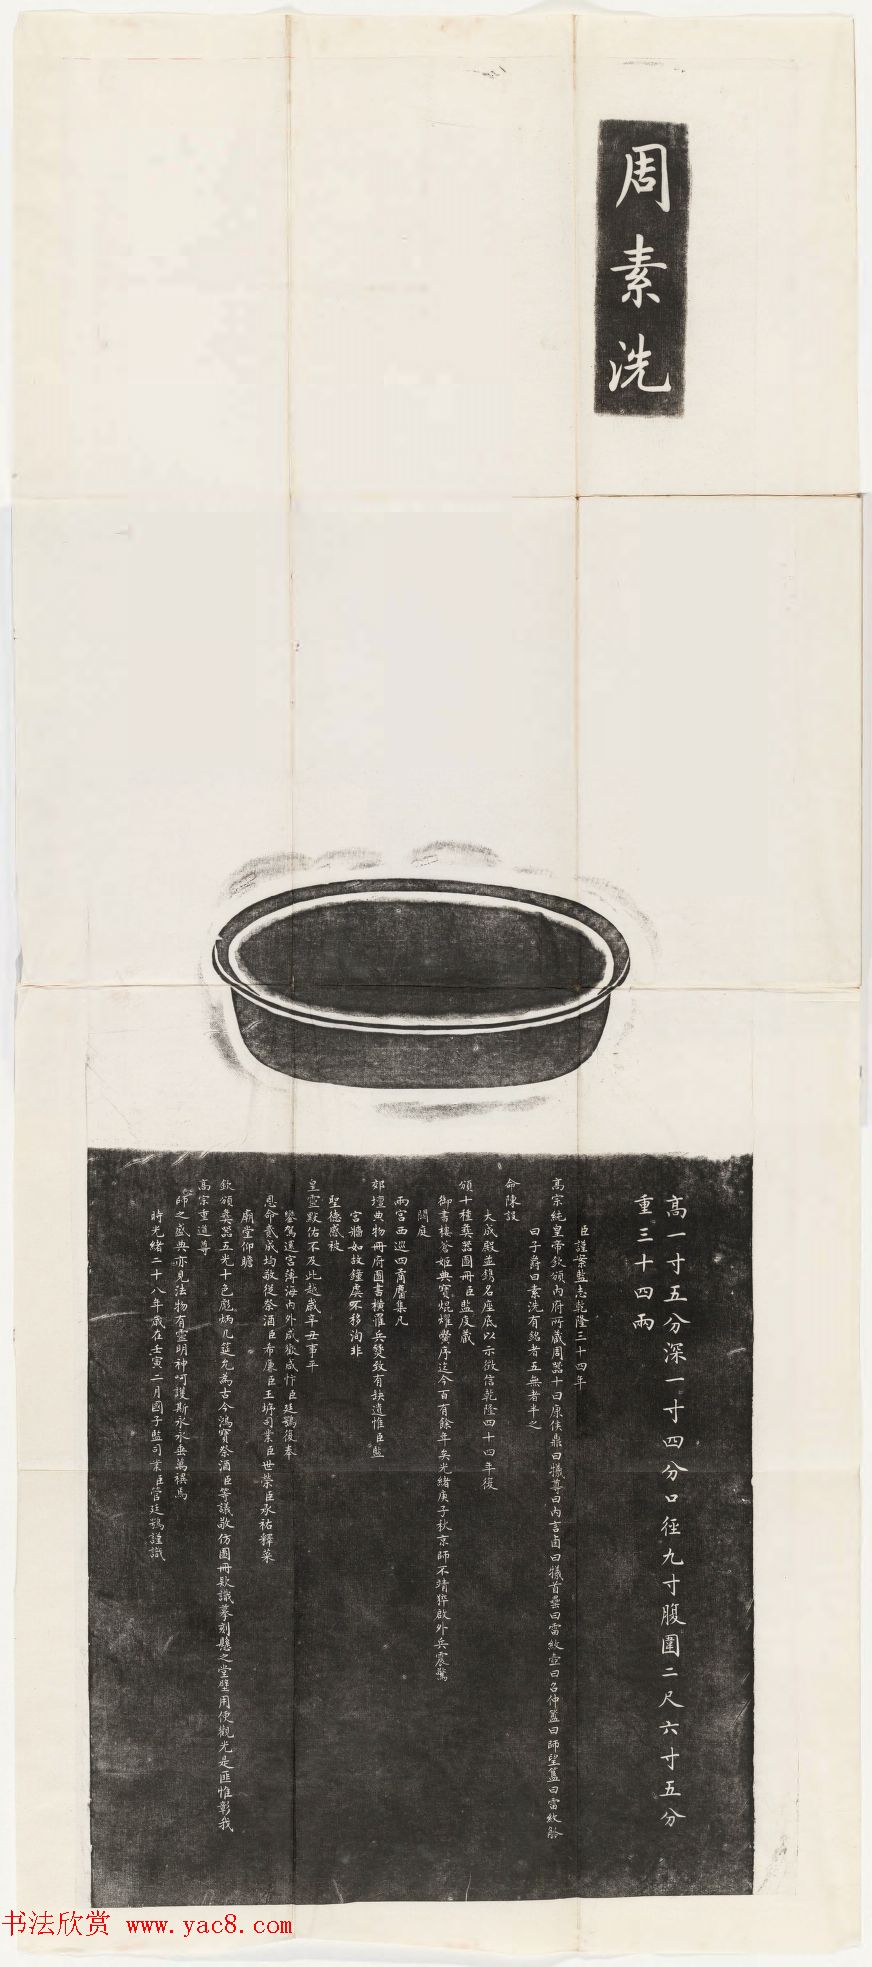 周素洗
高一寸五分深一寸四分口徑九寸腹圍二尺六寸五分
重三十四兩
臣謹案監志乾隆三十四年
高宗純皇帝欽頒內府所藏周器十曰康侯鼎曰犧尊曰內言卣曰犧首罍曰雷紋壺曰召仲簠曰師望簋曰雷紋觚
曰子爵曰素洗有銘者五無者半之
命陳設
大成殿並鐫名座底以示徵信乾隆四十四年復
頒十種彝器圖冊臣監庋藏
御書樓蒼姬典寶焜燿黌序迄今百有餘年矣光緒庚子秋京師不靖猝啟外兵震驚
闕庭
兩宮西巡四霱麕集凡
郊壇典物冊府圖書橫罹兵燹致有缺遺惟臣監
宮牆如故鐘虡不移洵非
聖德感被
皇靈默佑不及此越歲辛丑事平
鑾駕還宮薄海內外咸歡咸忭臣廷鶚復奉
恩命貳成均敬從祭酒臣布廉臣王垿司業臣世榮臣承祐釋菜
廟堂仰瞻
欽頒彝器五光十色彪炳几筵允為古今鴻寶祭酒臣等議敬仿圖冊款識摹刻懸之堂壁用便觀光是匪惟彰我
高宗重道尊
師之盛典亦見法物有靈明神呵護斯永永垂萬禩焉
時光緒二十八年歲在壬寅二月國子監司業臣管廷鶚謹識
书法欣赏 www.yac8.com